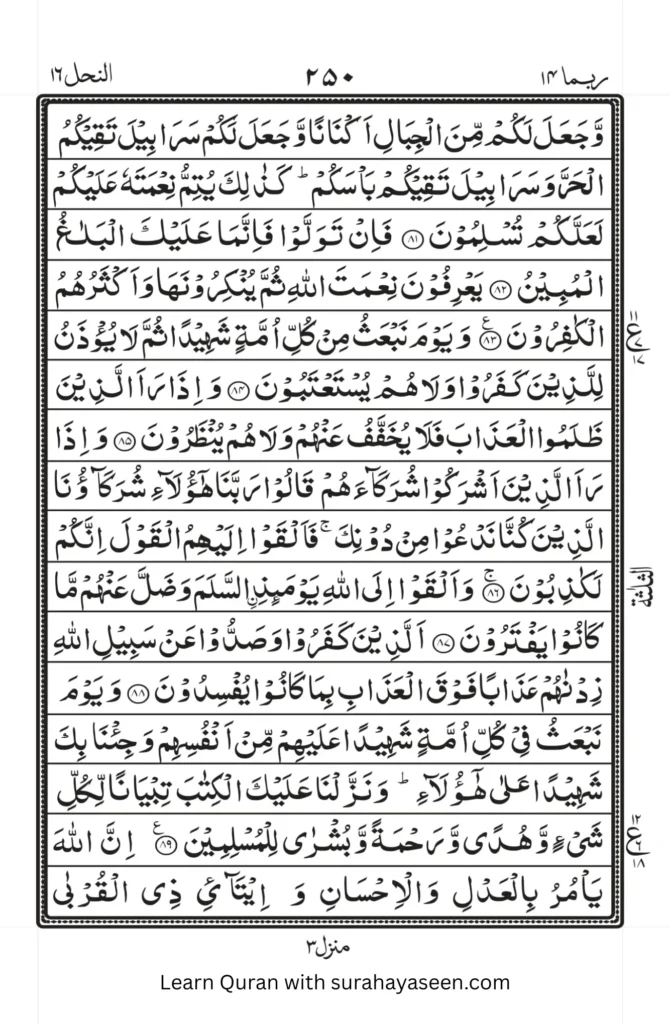 ربما ١٤ ٢٥٠ النحل ١٦
وَّجَعَلَ لَكُمْ مِّنَ الْجِبَالِ اَكْنَانًا وَّجَعَلَ لَكُمْ سَرَابِيْلَ تَقِيْكُمُ
الْحَرَّ وَسَرَابِيْلَ تَقِيْكُمْ بَاْسَكُمْ ؕ كَذٰلِكَ يُتِمُّ نِعْمَتَهٗ عَلَيْكُمْ
لَعَلَّكُمْ تُسْلِمُوْنَ ﴿۸۱﴾ فَاِنْ تَوَلَّوْا فَاِنَّمَا عَلَيْكَ الْبَلٰغُ
الْمُبِيْنُ ﴿۸۲﴾ يَعْرِفُوْنَ نِعْمَتَ اللّٰهِ ثُمَّ يُنْكِرُوْنَهَا وَاَكْثَرُهُمُ
الْكٰفِرُوْنَ ﴿۸۳﴾ وَيَوْمَ نَبْعَثُ مِنْ كُلِّ اُمَّةٍ شَهِيْدًا ثُمَّ لَا يُؤْذَنُ
لِلَّذِيْنَ كَفَرُوْا وَلَا هُمْ يُسْتَعْتَبُوْنَ ﴿۸۴﴾ وَاِذَا رَاَ الَّذِيْنَ
ظَلَمُوا الْعَذَابَ فَلَا يُخَفَّفُ عَنْهُمْ وَلَا هُمْ يُنْظَرُوْنَ ﴿۸۵﴾ وَاِذَا
رَاَ الَّذِيْنَ اَشْرَكُوْا شُرَكَآءَهُمْ قَالُوْا رَبَّنَا هٰٓؤُلَآءِ شُرَكَآؤُنَا
الَّذِيْنَ كُنَّا نَدْعُوْا مِنْ دُوْنِكَ ۚ فَاَلْقَوْا اِلَيْهِمُ الْقَوْلَ اِنَّكُمْ
لَكٰذِبُوْنَ ﴿۸۶﴾ۚ وَاَلْقَوْا اِلَى اللّٰهِ يَوْمَئِذِ ࣙالسَّلَمَ وَضَلَّ عَنْهُمْ مَّا
كَانُوْا يَفْتَرُوْنَ ﴿۸۷﴾ اَلَّذِيْنَ كَفَرُوْا وَصَدُّوْا عَنْ سَبِيْلِ اللّٰهِ
زِدْنٰهُمْ عَذَابًا فَوْقَ الْعَذَابِ بِمَا كَانُوْا يُفْسِدُوْنَ ﴿۸۸﴾ وَيَوْمَ
نَبْعَثُ فِيْ كُلِّ اُمَّةٍ شَهِيْدًا عَلَيْهِمْ مِّنْ اَنْفُسِهِمْ وَجِئْنَا بِكَ
شَهِيْدًا عَلٰى هٰٓؤُلَآءِ ؕ وَنَزَّلْنَا عَلَيْكَ الْكِتٰبَ تِبْيَانًا لِّكُلِّ
شَيْءٍ وَّهُدًى وَّرَحْمَةً وَّبُشْرٰى لِلْمُسْلِمِيْنَ ﴿۸۹﴾ اِنَّ اللّٰهَ
يَاْمُرُ بِالْعَدْلِ وَالْاِحْسَانِ وَ اِيْتَآئِ ذِي الْقُرْبٰى
١١ ع ٧ ١٧
الثلثة
١٢ ع ٦ ١٨
منزل ٣
Learn Quran with surahayaseen.com